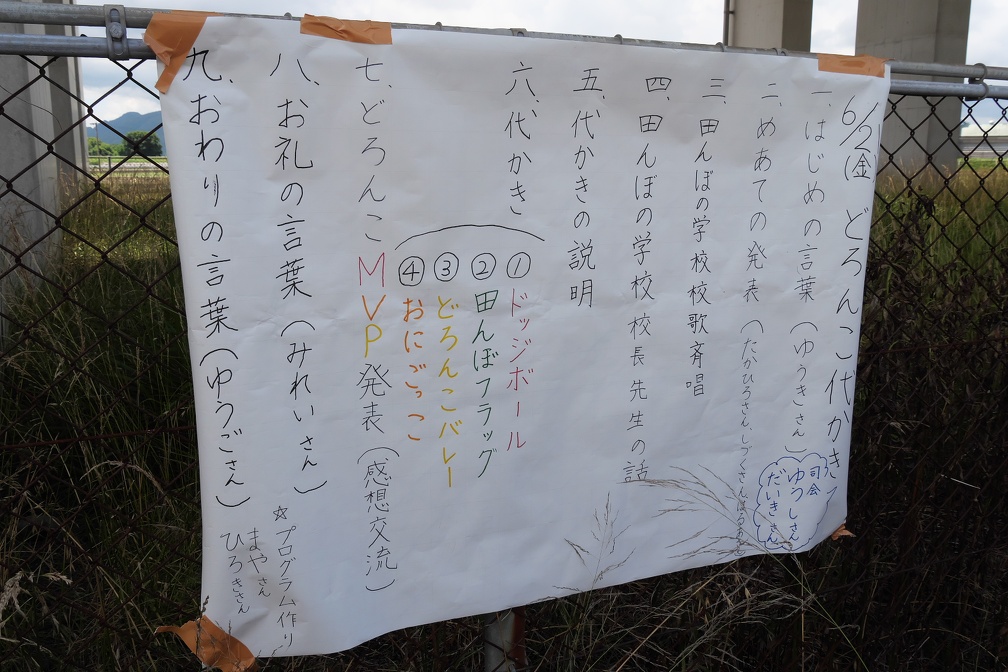 6/2(金) どろんこ代かき
司会
ゆうしさん
だいきさん
一、はじめの言葉(ゆうきさん)
二、めあての発表(たかひろさん、しづくさん
三、田んぼの学校校歌斉唱
四、田んぼの学校校長先生の話
五、代かきの説明
六、代かき
①ドッジボール
②田んぼフラッグ
③どろんこバレー
④おにごっこ
七、どろんこMVP発表(感想交流)
八、お礼の言葉(みれいさん)
九、おわりの言葉(ゆうごさん)
☆プログラム作り
まやさん
ひろきさん